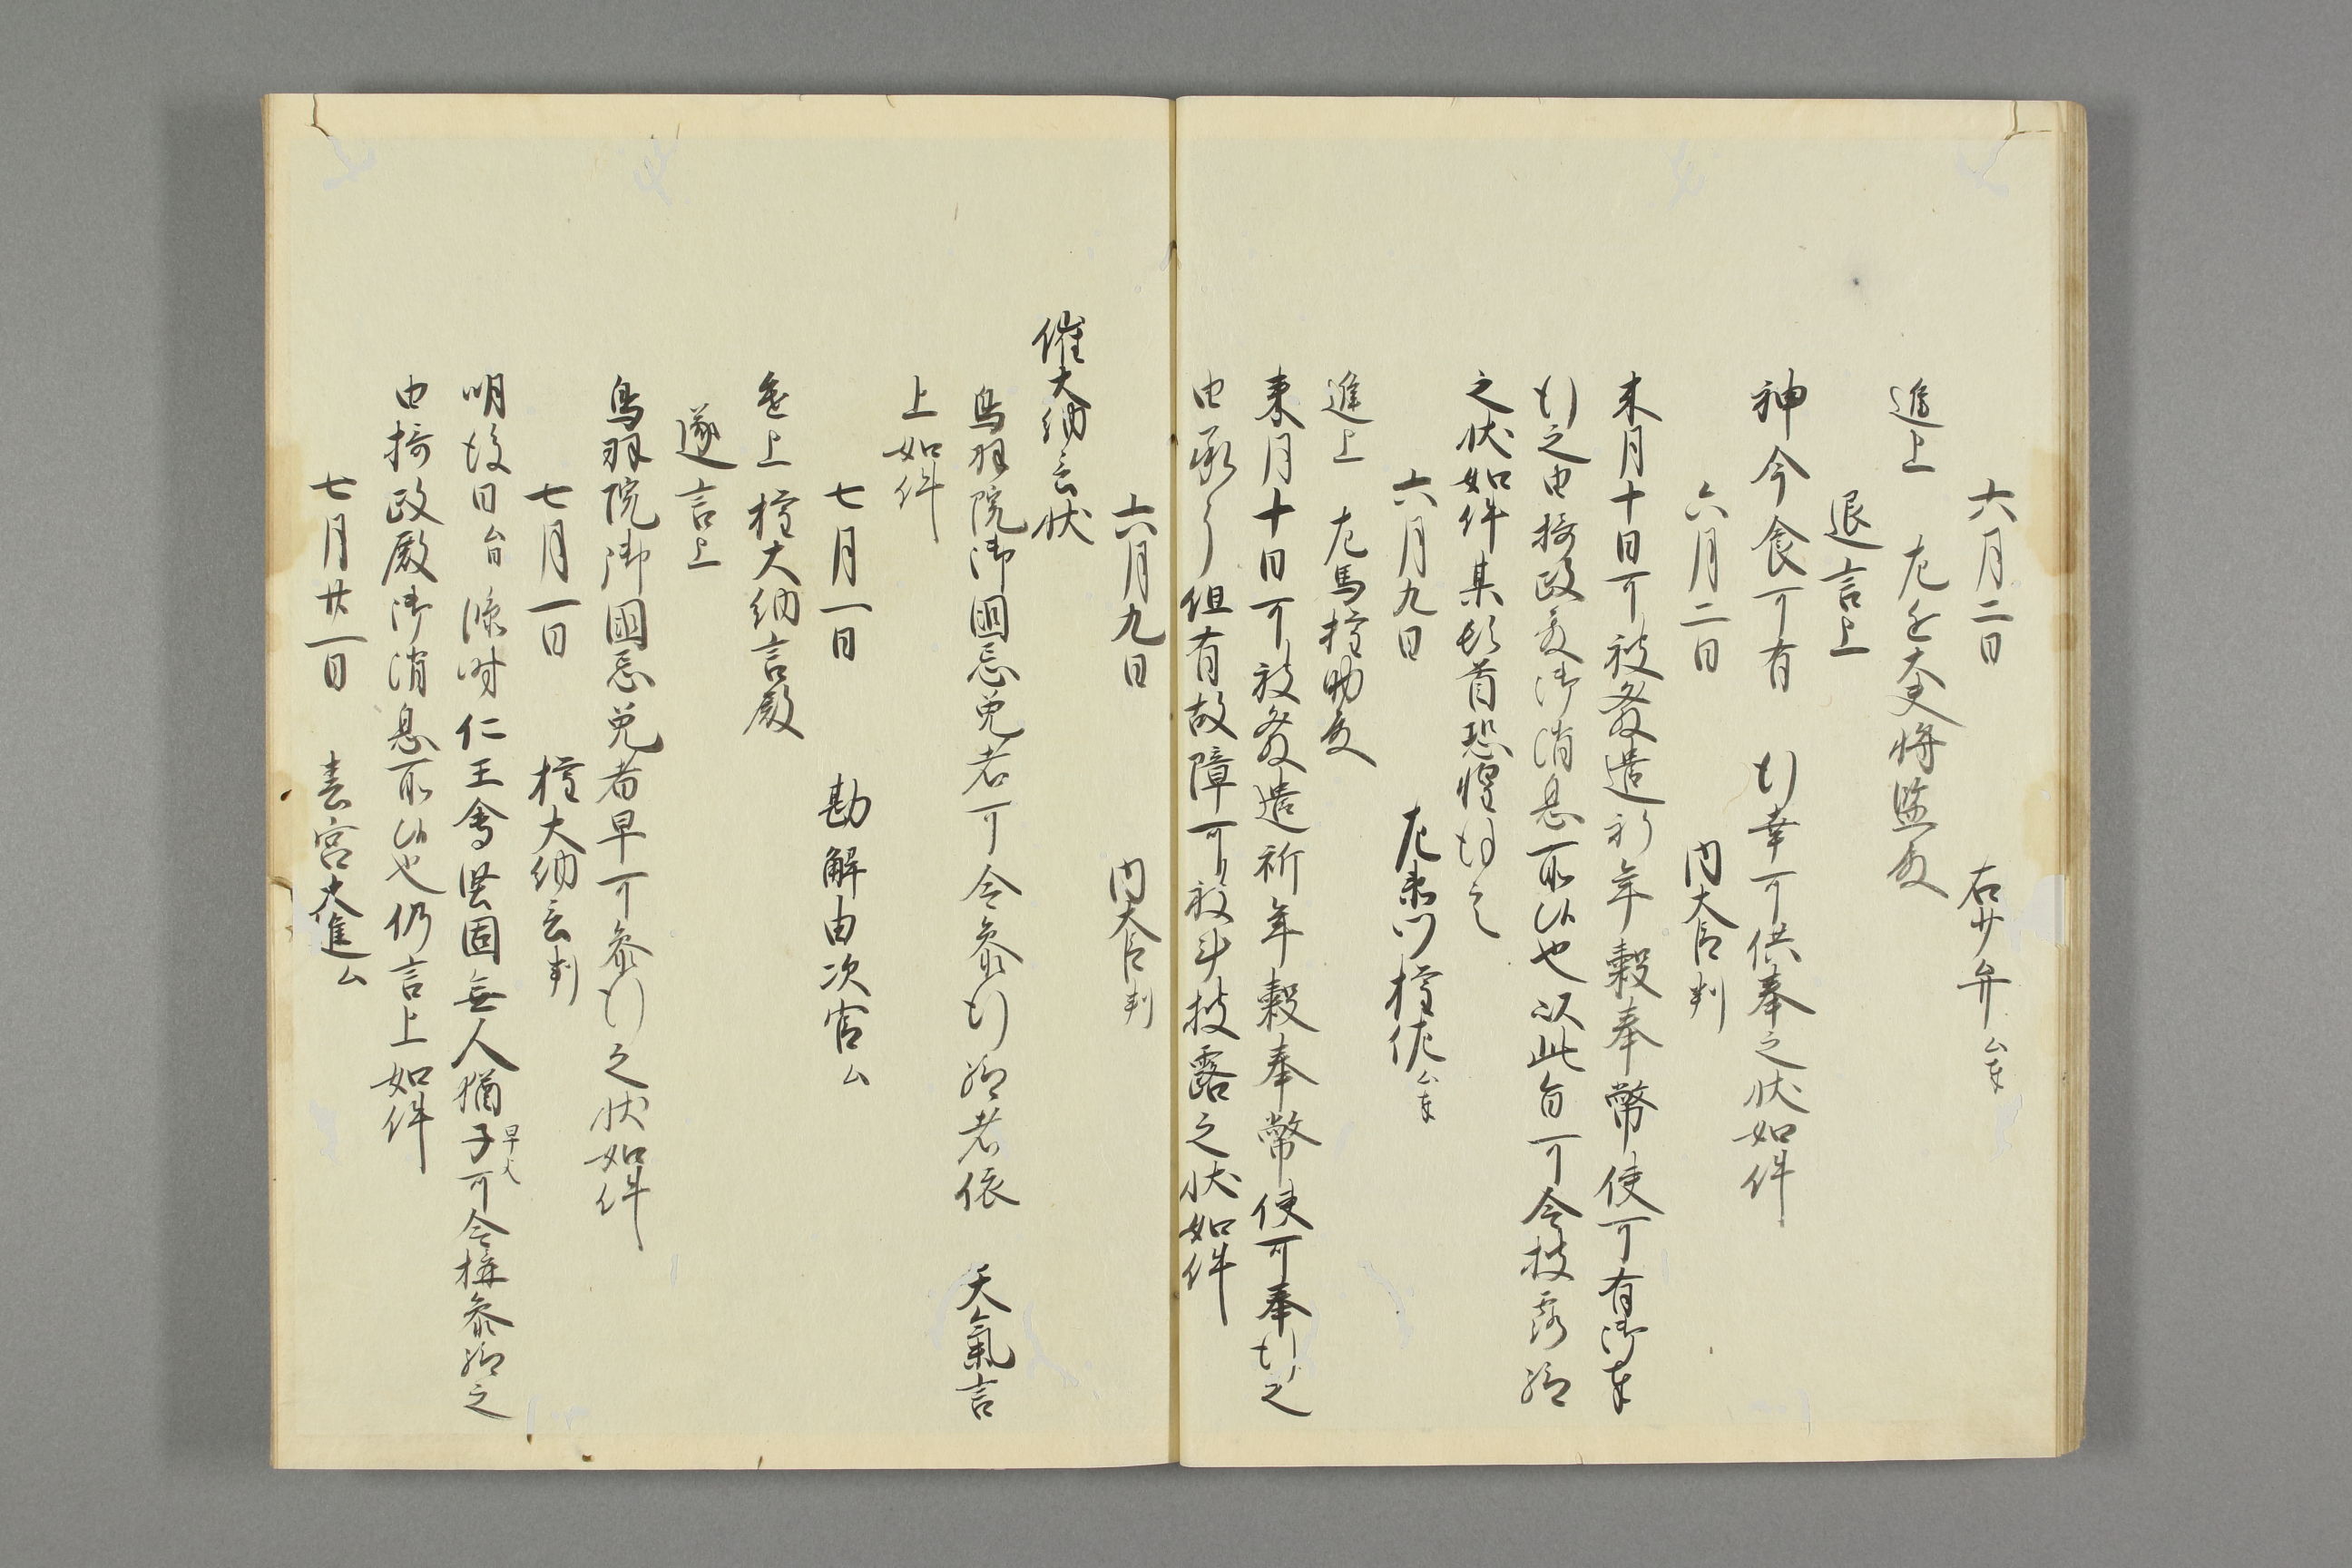 六月二日 右少弁ム奉
進上 左近大夫将監殿
退言上
神今食可有 行幸可供奉之状如件
六月二日 内大臣判
来月十日可被発遣祈年穀奉幣使可有御奉
行之由摂政殿御消息所候也以此旨可令披露給
之状如件某頓首恐惶謹言
六月九日 左衛門権佐ム奉
進上 左馬権助殿
来月十日可被発遣祈年穀奉幣使可奉行之
由承了但有故障可被申披露之状如件
六月九日 内大臣判
催大納言状
鳥羽院御國忌免者可令参行給者依 天氣言
上如件
七月一日 勘解由次官ム
進上 権大納言殿
遂言上
鳥羽院御國忌免者早可参行之状如件
七月一日 権大納言判
明後日臨時仁王會堅固無人猶子早可令構参給之
由摂政殿御消息所候也仍言上如件
七月廿一日 春宮大進ム